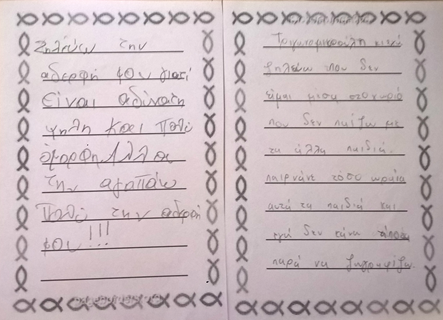 Ζηλεύω την
αδερφή μου γιατί
είναι αδύνατη
ψηλή και πολύ
όμορφη Αλλα
την αγαπάω
πολύ την αδερφή
μου!!!
ζηλεύω που δεν
είμαι μεσα στο χωριό
που δεν παίζω με
τα άλλα παιδιά.
περνάνε τόσο ωραία
αυτά τα παιδιά και
εγώ δεν κάνω τίποτα
παρά να ζωγραφίζω.